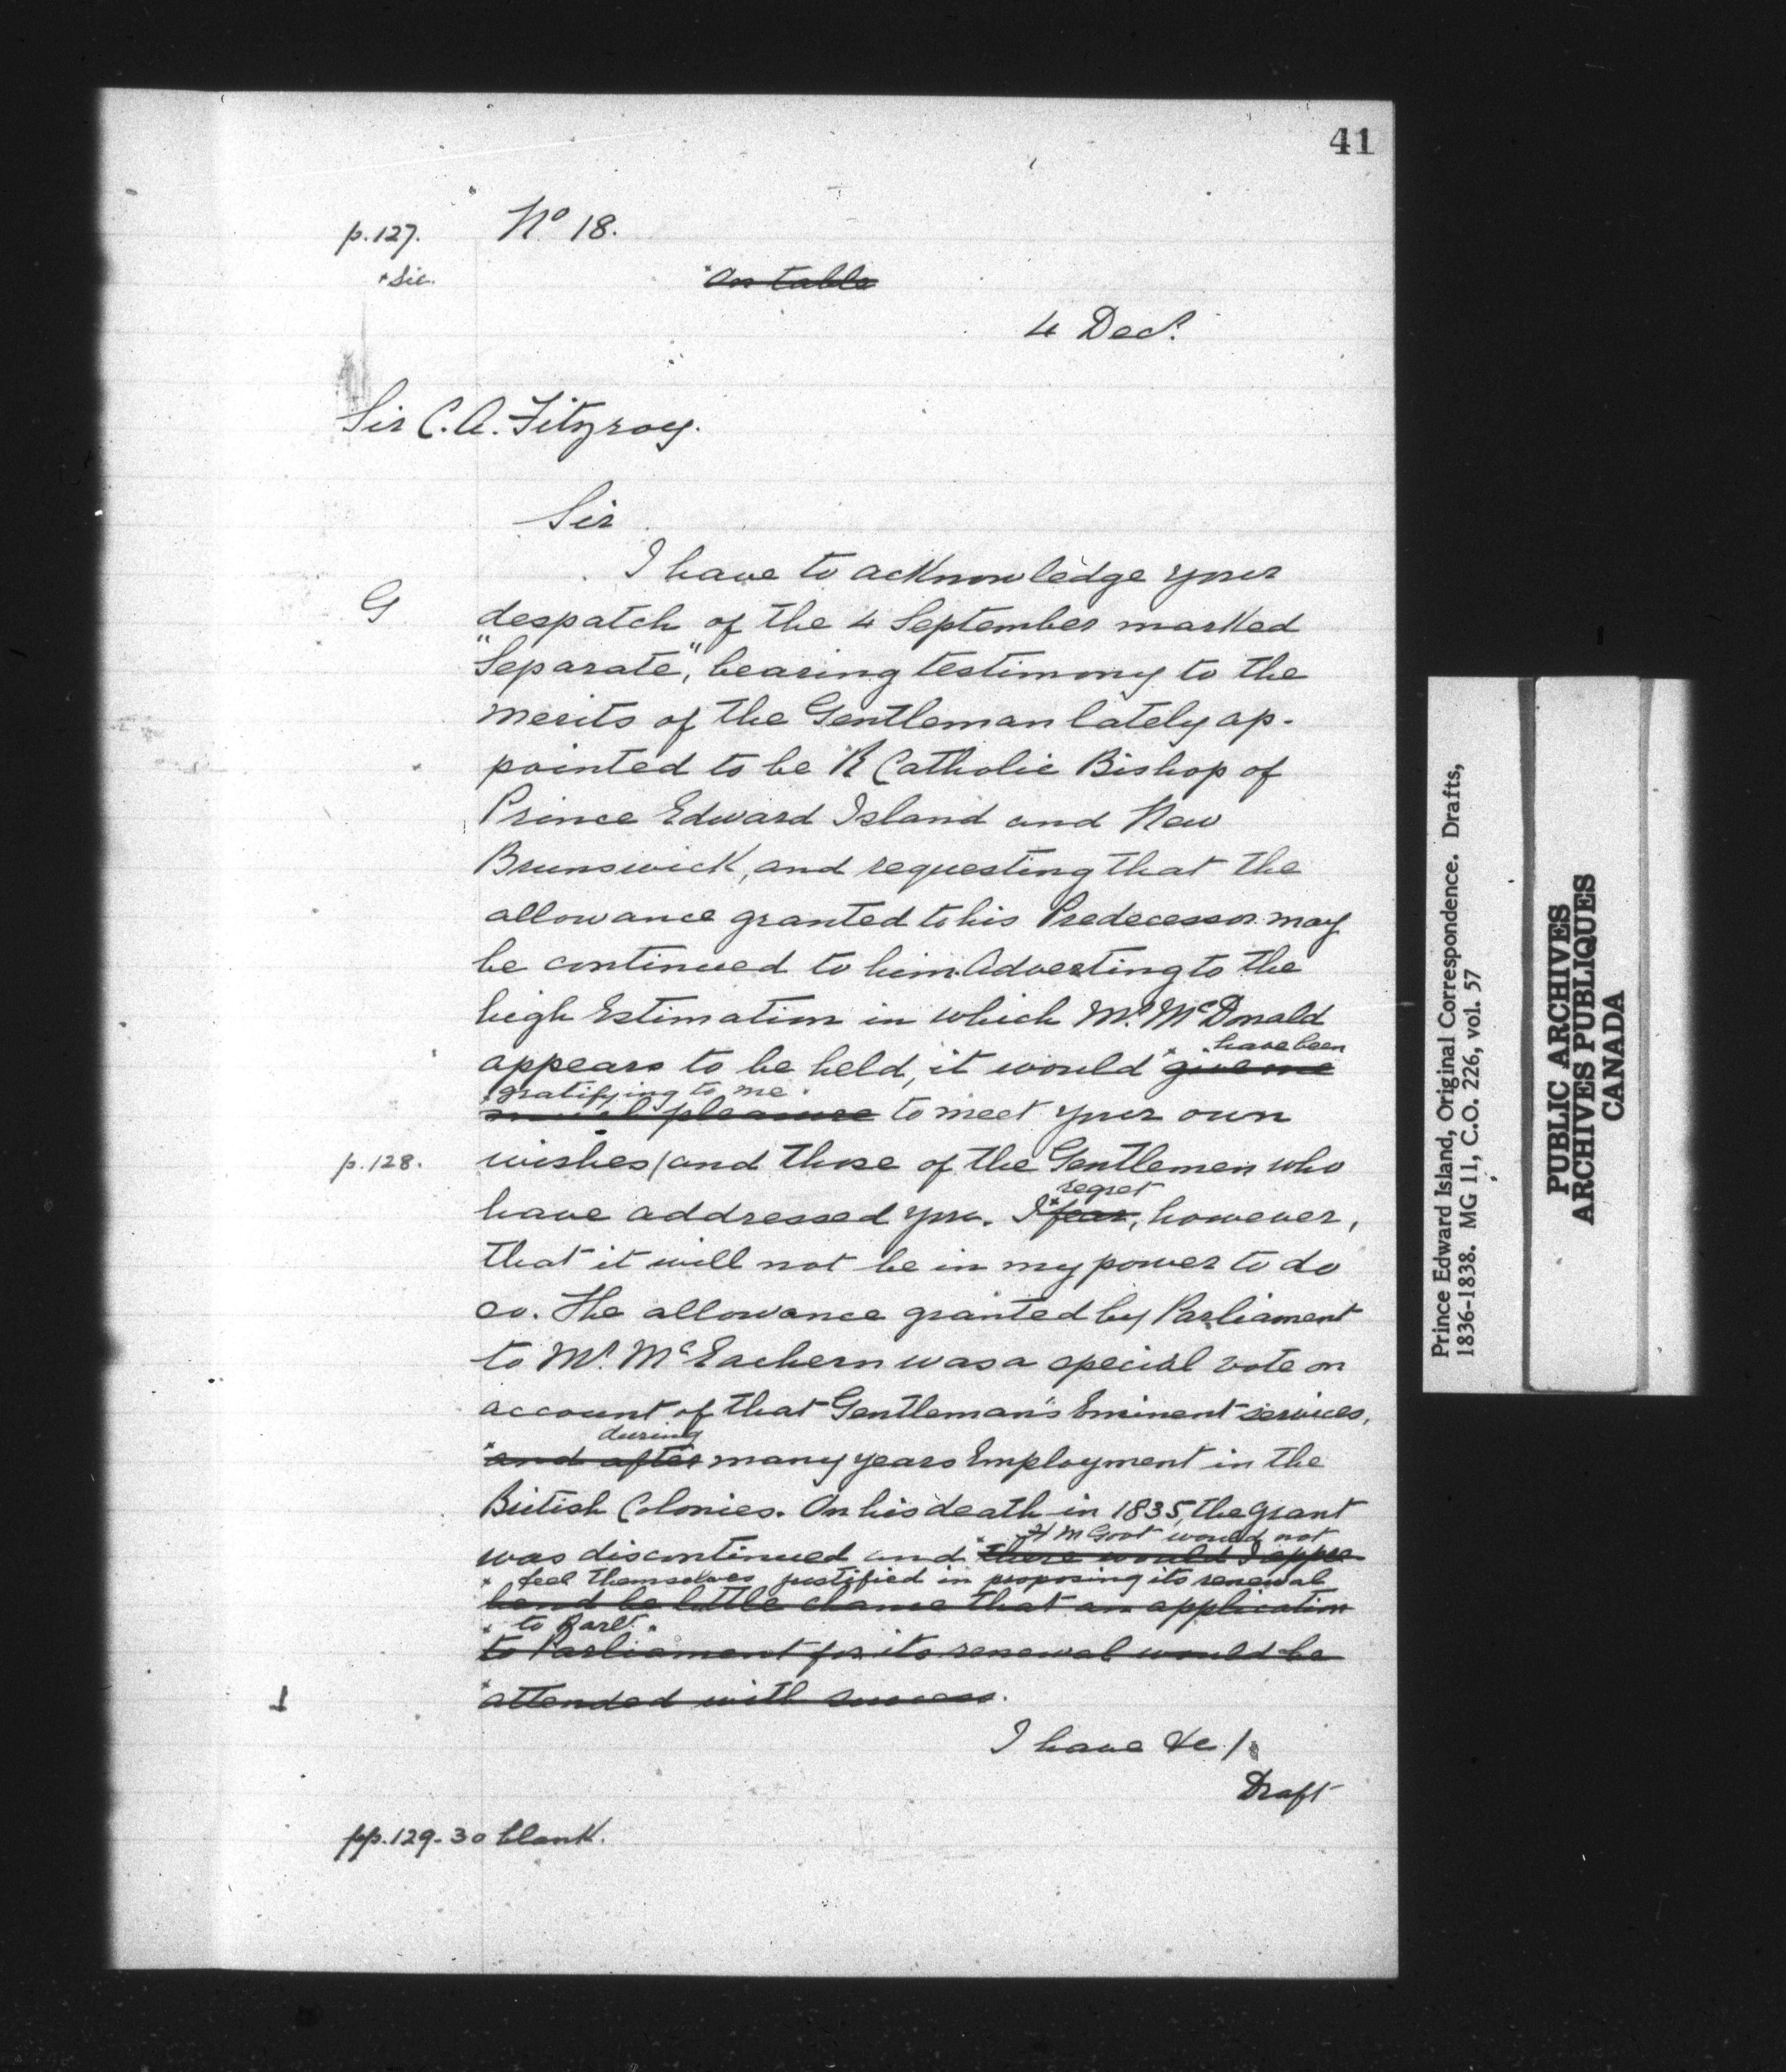 41
p.127. No 18.
*Sic. *On table
4 Decr.
Sir C. A. Fitzroy.
Sir
I have to acknowledge your
G despatch of the 4 September marked
"Separate", bearing testimony to the
merits of the Gentleman lately ap-
pointed to be R Catholic Bishop of
Prince Edward Island and New
Brunswick, and requesting that the
allowance granted to his Predecessor may
be continued to him. Adverting to the
high Estimation in which Mr. McDonald
have been
appears to be held, it would give me
gratifying to me
much pleasure to meet your own
p.128. wishes/and those of the Gentlemen who
regret
have addressed you. I fear, however,
that it will not be in my power to do
so. The allowance granted by Parliament
to Mr. McEachern was a special vote on
account of that Gentleman's Eminent services,
during
and after many years Employment in the
British Colonies. On his death in 1835, the grant
H M Govt would not
was discontinued and there would I appre-
feel themselves justified in proposing its renewal
hend be little chance that an application
to Parlt.
to Parliament for its renewal would be
attended with success.
I have &c/.
Draft
pp.129-30 blank.
Prince Edward Island, Original Correspondence. Drafts,
1836-1838. MG 11, C.O. 226, vol. 57
PUBLIC ARCHIVES
ARCHIVES PUBLIQUES
CANADA